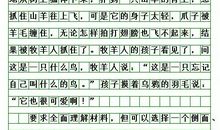 抓住山羊往上飞，可是它的身子太轻，爪子被
羊毛缠住，无论怎样拍打翅膀也飞不起来，结
果被牧羊人抓住了。牧羊人的孩子看见了，问
这是一只什么鸟，牧羊人说：“这是一只忘记
自己叫什么的鸟。”孩子摸着乌鸦的羽毛说：
“它也很可爱啊！”
要求全面理解材料，但可以选择一个侧面